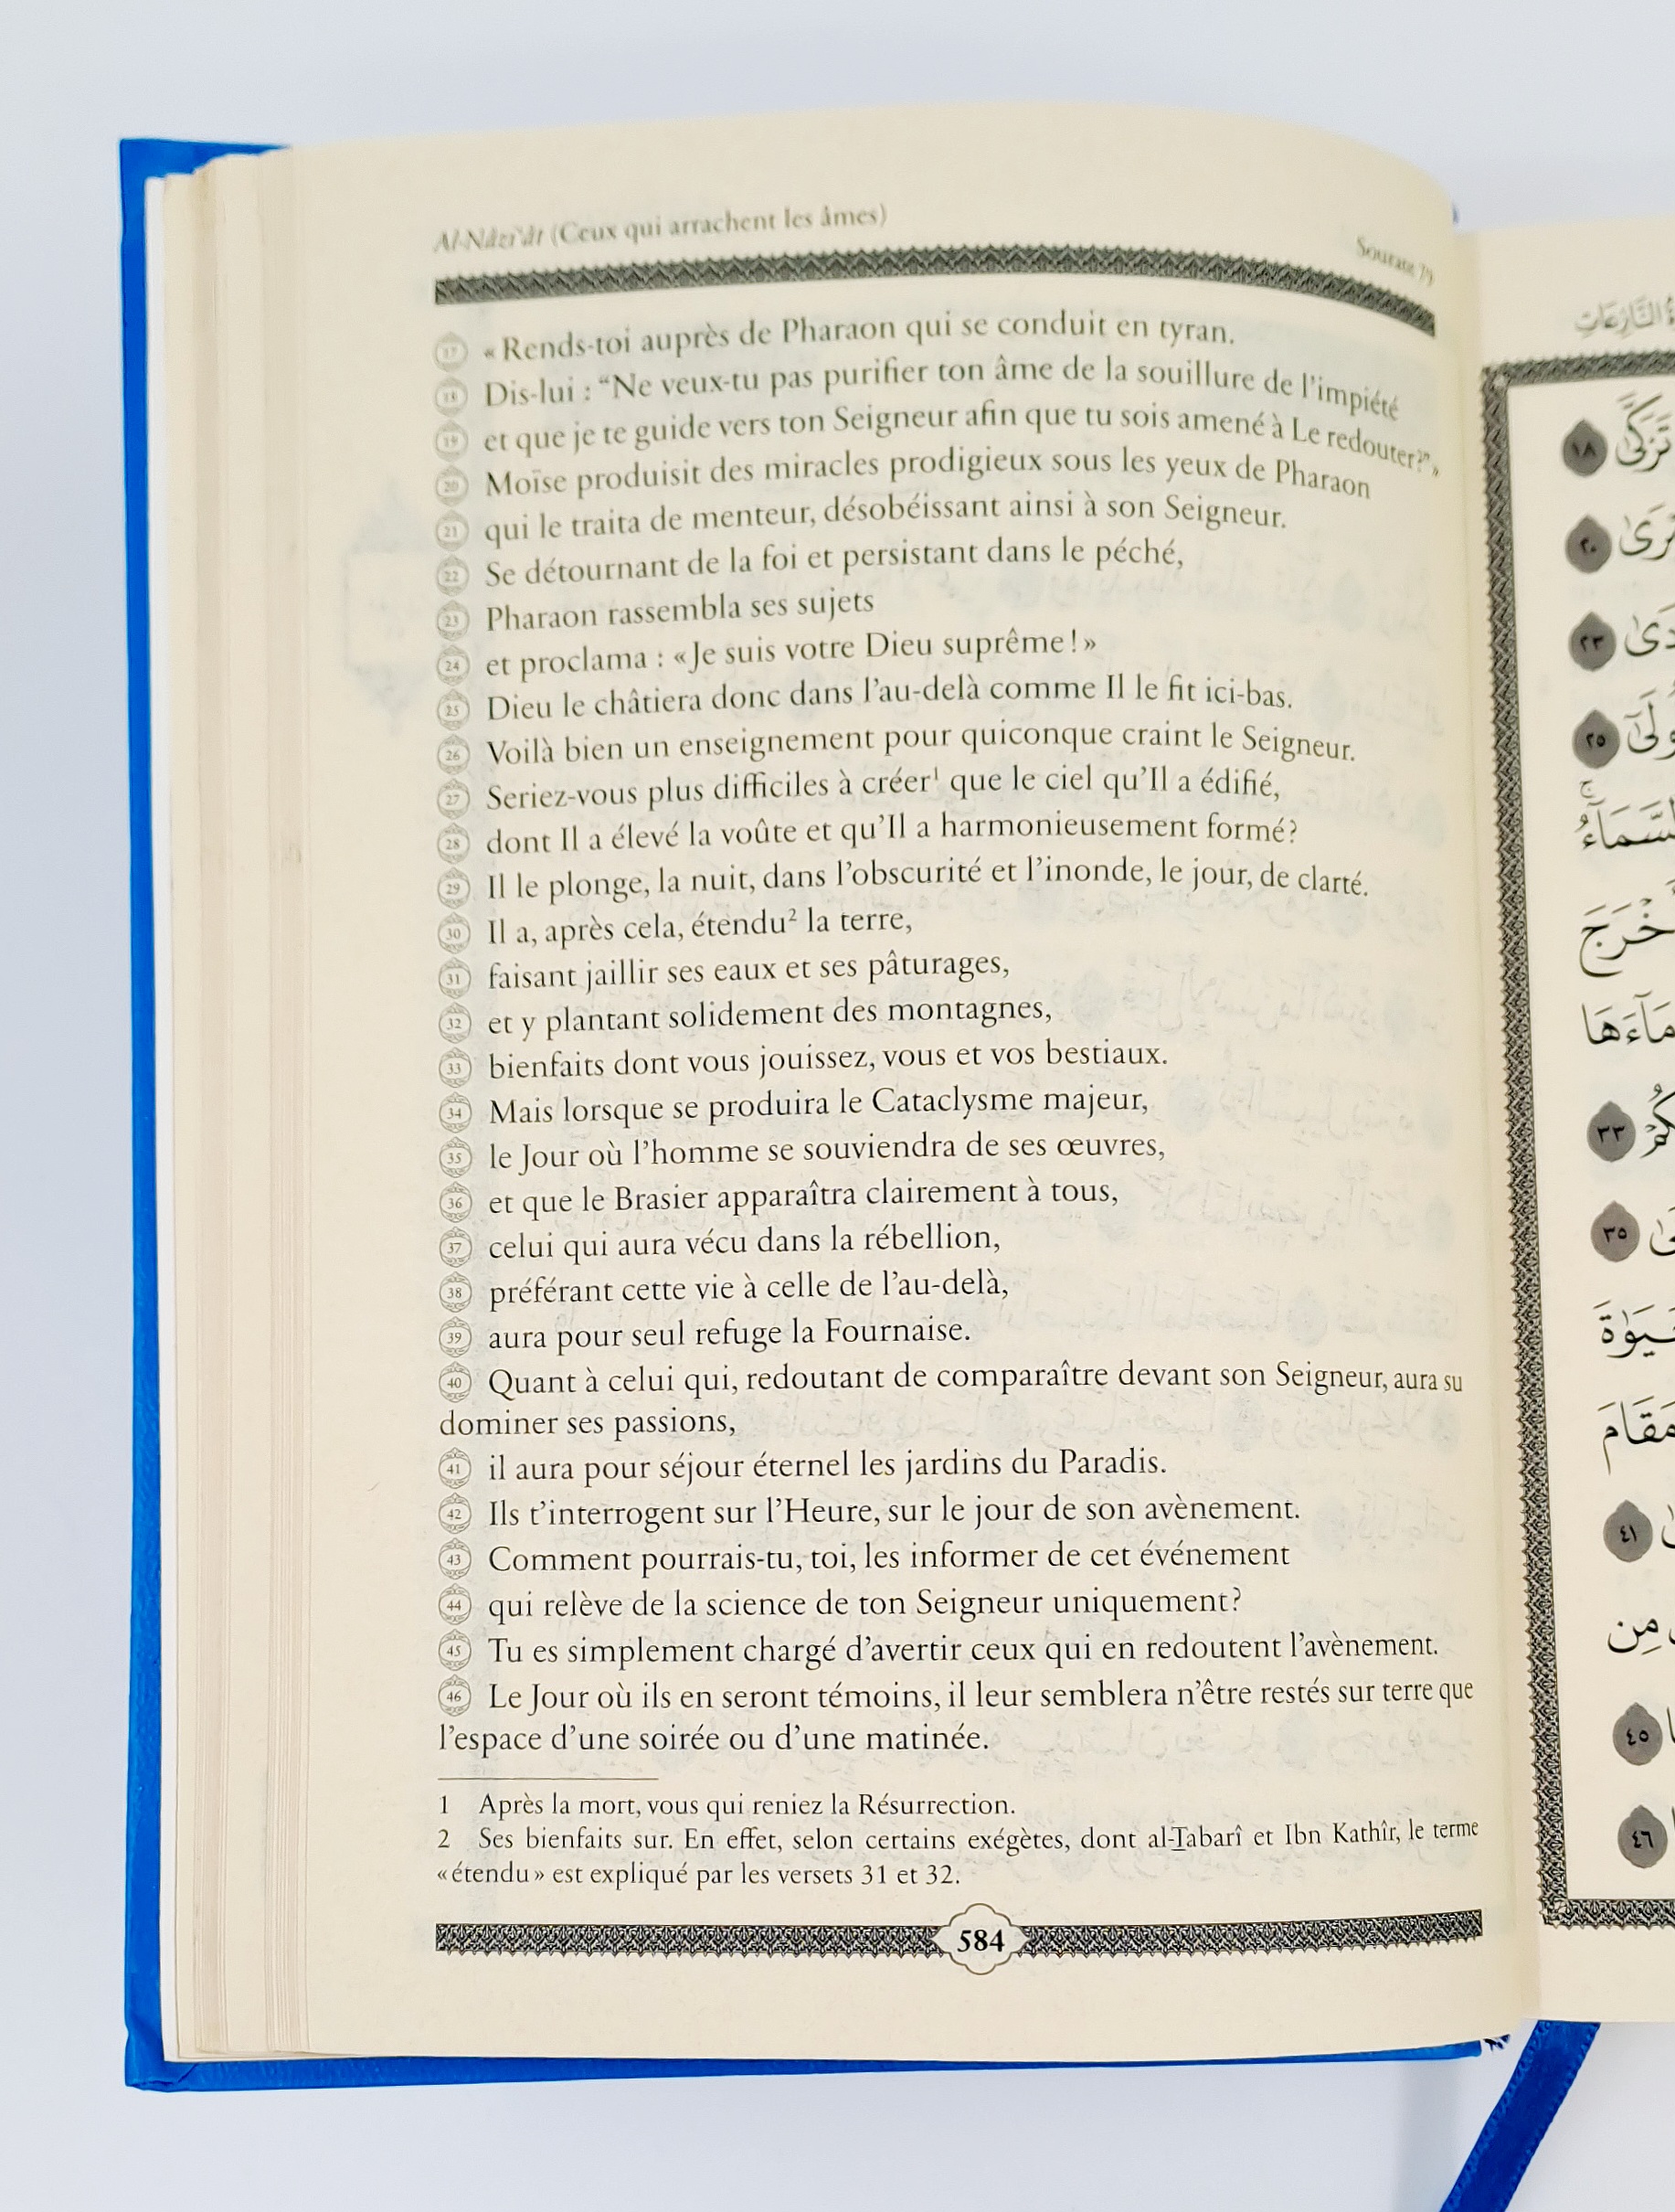 Al-Nâzi‘ât (Ceux qui arrachent les âmes)
Sourate 79
17 « Rends-toi auprès de Pharaon qui se conduit en tyran.
18 Dis-lui : “Ne veux-tu pas purifier ton âme de la souillure de l’impiété
19 et que je te guide vers ton Seigneur afin que tu sois amené à Le redouter?” »
20 Moïse produisit des miracles prodigieux sous les yeux de Pharaon
21 qui le traita de menteur, désobéissant ainsi à son Seigneur.
22 Se détournant de la foi et persistant dans le péché,
23 Pharaon rassembla ses sujets
24 et proclama : « Je suis votre Dieu suprême ! »
25 Dieu le châtiera donc dans l’au-delà comme Il le fit ici-bas.
26 Voilà bien un enseignement pour quiconque craint le Seigneur.
27 Seriez-vous plus difficiles à créer¹ que le ciel qu’Il a édifié,
28 dont Il a élevé la voûte et qu’Il a harmonieusement formé?
29 Il le plonge, la nuit, dans l’obscurité et l’inonde, le jour, de clarté.
30 Il a, après cela, étendu² la terre,
31 faisant jaillir ses eaux et ses pâturages,
32 et y plantant solidement des montagnes,
33 bienfaits dont vous jouissez, vous et vos bestiaux.
34 Mais lorsque se produira le Cataclysme majeur,
35 le Jour où l’homme se souviendra de ses œuvres,
36 et que le Brasier apparaîtra clairement à tous,
37 celui qui aura vécu dans la rébellion,
38 préférant cette vie à celle de l’au-delà,
39 aura pour seul refuge la Fournaise.
40 Quant à celui qui, redoutant de comparaître devant son Seigneur, aura su
dominer ses passions,
41 il aura pour séjour éternel les jardins du Paradis.
42 Ils t’interrogent sur l’Heure, sur le jour de son avènement.
43 Comment pourrais-tu, toi, les informer de cet événement
44 qui relève de la science de ton Seigneur uniquement?
45 Tu es simplement chargé d’avertir ceux qui en redoutent l’avènement.
46 Le Jour où ils en seront témoins, il leur semblera n’être restés sur terre que
l’espace d’une soirée ou d’une matinée.
1 Après la mort, vous qui reniez la Résurrection.
2 Ses bienfaits sur. En effet, selon certains exégètes, dont al-Ṯabarî et Ibn Kathîr, le terme
« étendu » est expliqué par les versets 31 et 32.
584
النَّازِعَاتِ
تَزَكَّىٰ ١٨
٢٠
٢٣
٢٥
٣٣
٣٥
مَقَامَ
٤١
مِن
٤٥
٤٦